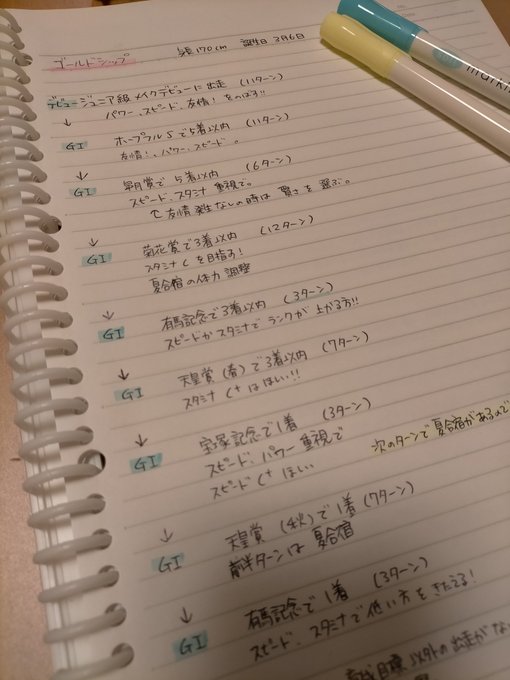 ゴールドシップ 身長170cm 誕生日 3月6日
デビュー ジュニア級 メイクデビューに出走 (11ターン)
↓ パワー、スピード、友情!をのばす!!
GI ホープフルSで5着以内 (11ターン)
友情!、パワー、スピード。
↓
GI 皐月賞で5着以内 (6ターン)
スピード、スタミナ 重視で。
↑友情発生なしの時は 賢さを選ぶ。
↓
GI 菊花賞で3着以内 (12ターン)
スタミナCを目指す!
夏合宿の体力調整
↓
GI 有馬記念で3着以内 (3ターン)
スピードかスタミナでランクが上がる方!!
↓
GI 天皇賞(春)で3着以内 (7ターン)
スタミナC+はほしい!!
↓
GI 宝塚記念で1着 (3ターン)
スピード、パワー重視で 次のターンで夏合宿があるので
スピードC+ほしい
↓
GI 天皇賞(秋)で1着(7ターン)
前半ターンは夏合宿
↓
GI 有馬記念で1着 (3ターン)
スピード、スタミナで低い方をきたえる!
育成目標以外の出走がな